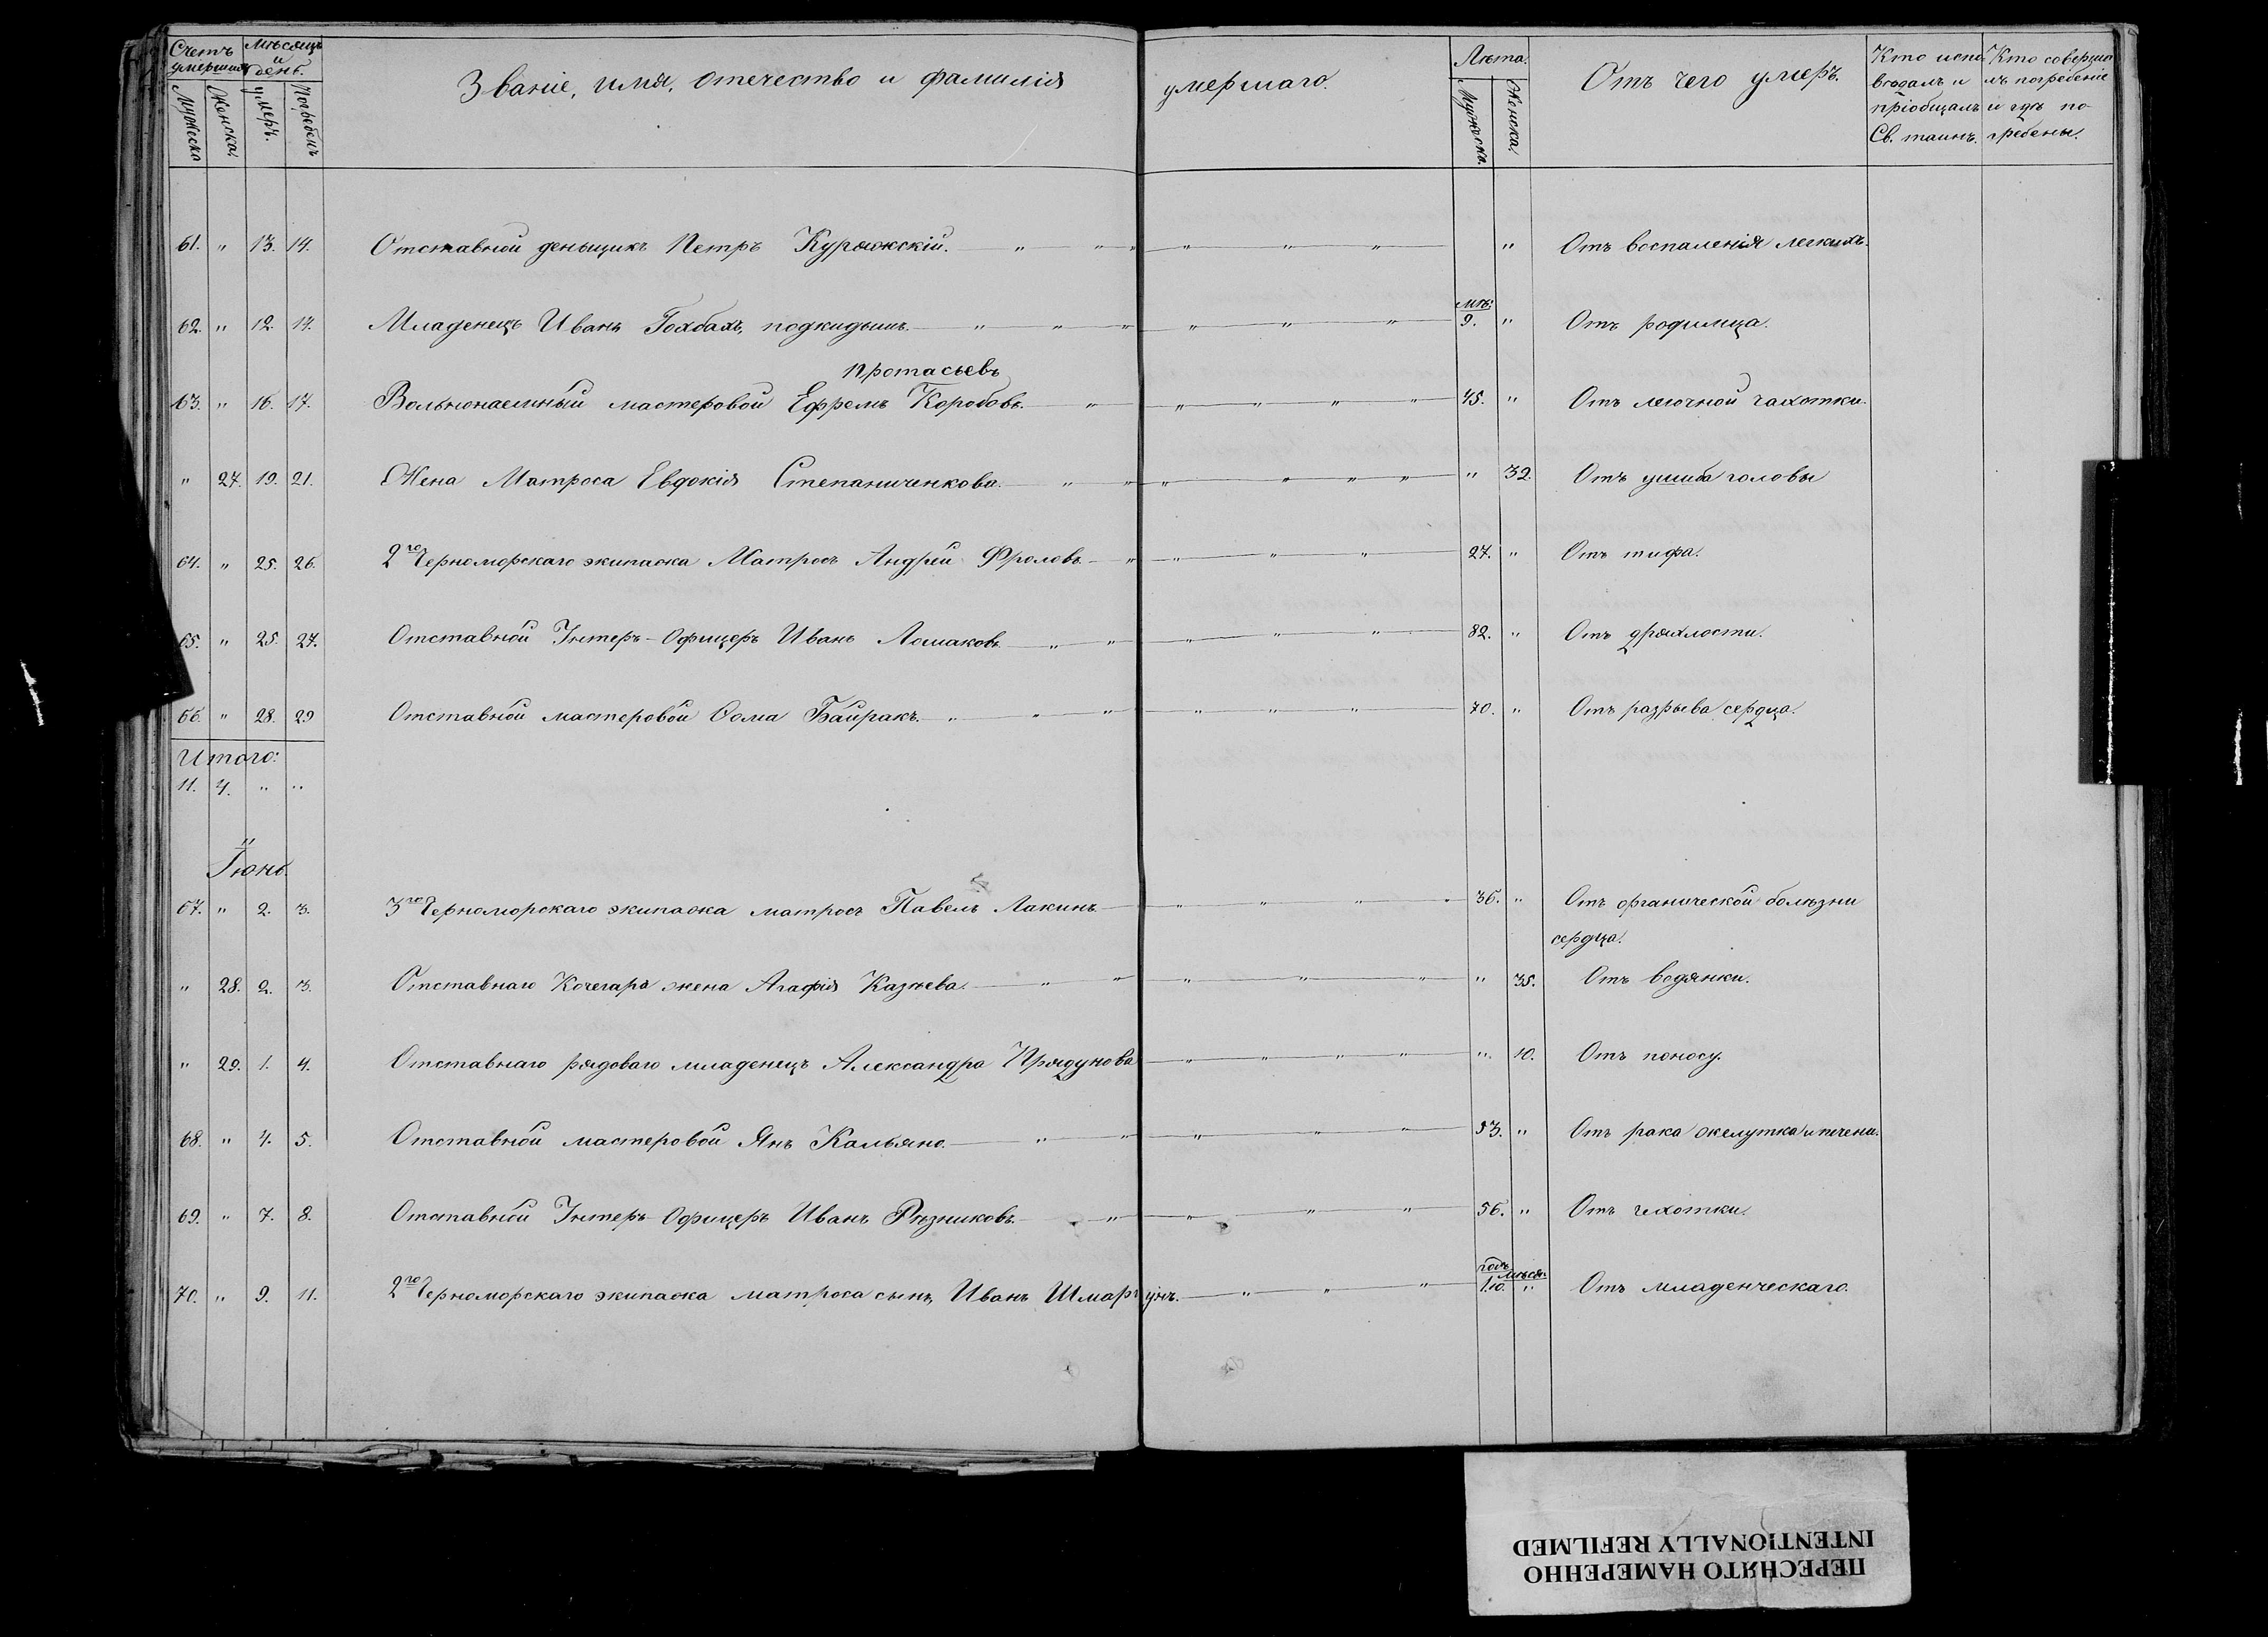 Счетъ умершихъ Мѣсяцъ и день. Звание, имя, отечество и фамилія умершаго. Лѣта. Отъ чего умеръ. Кто исповѣдалъ и пріобщалъ Св. таинъ. Кто совершалъ погребеніе и гдѣ погребены.
Мужеска Женска. умеръ. Погребенъ Мужеска. Женска.
61. " 13. 14. Отставной деньщикъ Петръ Куряжскій. " " " " " " " Отъ воспаленія легкихъ.
мѣ:
62. " 12. 14. Младенецъ Иванъ Гохбахъ, подкидышъ. " " " " " " 9. " Отъ родимца.
Протасьевъ
63. " 16. 17. Вольнонаемный мастеровой Ефремъ Коробовъ. " " " " " 45. " Отъ легочной чахотки.
" 27. 19. 21. Жена Матроса Евдокія Степаниченкова. " " " " " " " 32. Отъ ушиба головы
64. " 25. 26. 2го Черноморскаго экипажа Матросъ Андрей Фроловъ. " " " " 27. " Отъ тифа.
65. " 25. 27. Отставной Унтеръ-Офицеръ Иванъ Ломаковъ. " " " " " 82. " Отъ дряхлости.
66. " 28. 29 Отставной мастеровой Ѳома Байракъ. " " " " " " 70. " Отъ разрыва сердца.
Итого:
11. 4. " "
Іюнь.
67. " 2. 3. 3го Черноморскаго экипажа матросъ Павелъ Лакинъ. " " " " 36. " Отъ органической болѣзни
сердца.
" 28. 2. 3. Отставнаго Кочегара жена Агафія Казнева. " " " " " " 35. Отъ водянки.
" 29. 1. 4. Отставнаго рядоваго младенецъ Александра Прядунова " " " " " 10. Отъ поносу.
68. " 4. 5. Отставной мастеровой Янъ Кальяно. " " " " " 53. " Отъ рака желутка и печени.
69. " 7. 8. Отставной Унтеръ-Офицеръ Иванъ Рѣзниковъ. " " " " 56. " Отъ чахотки.
годъ мѣся.
70. " 9. 11. 2го Черноморскаго экипажа матроса сынъ, Иванъ Шмаргунъ. " " " 1.10. " Отъ младенческаго.
ПЕРЕСНЯТО НАМЕРЕННО
INTENTIONALLY REFILMED